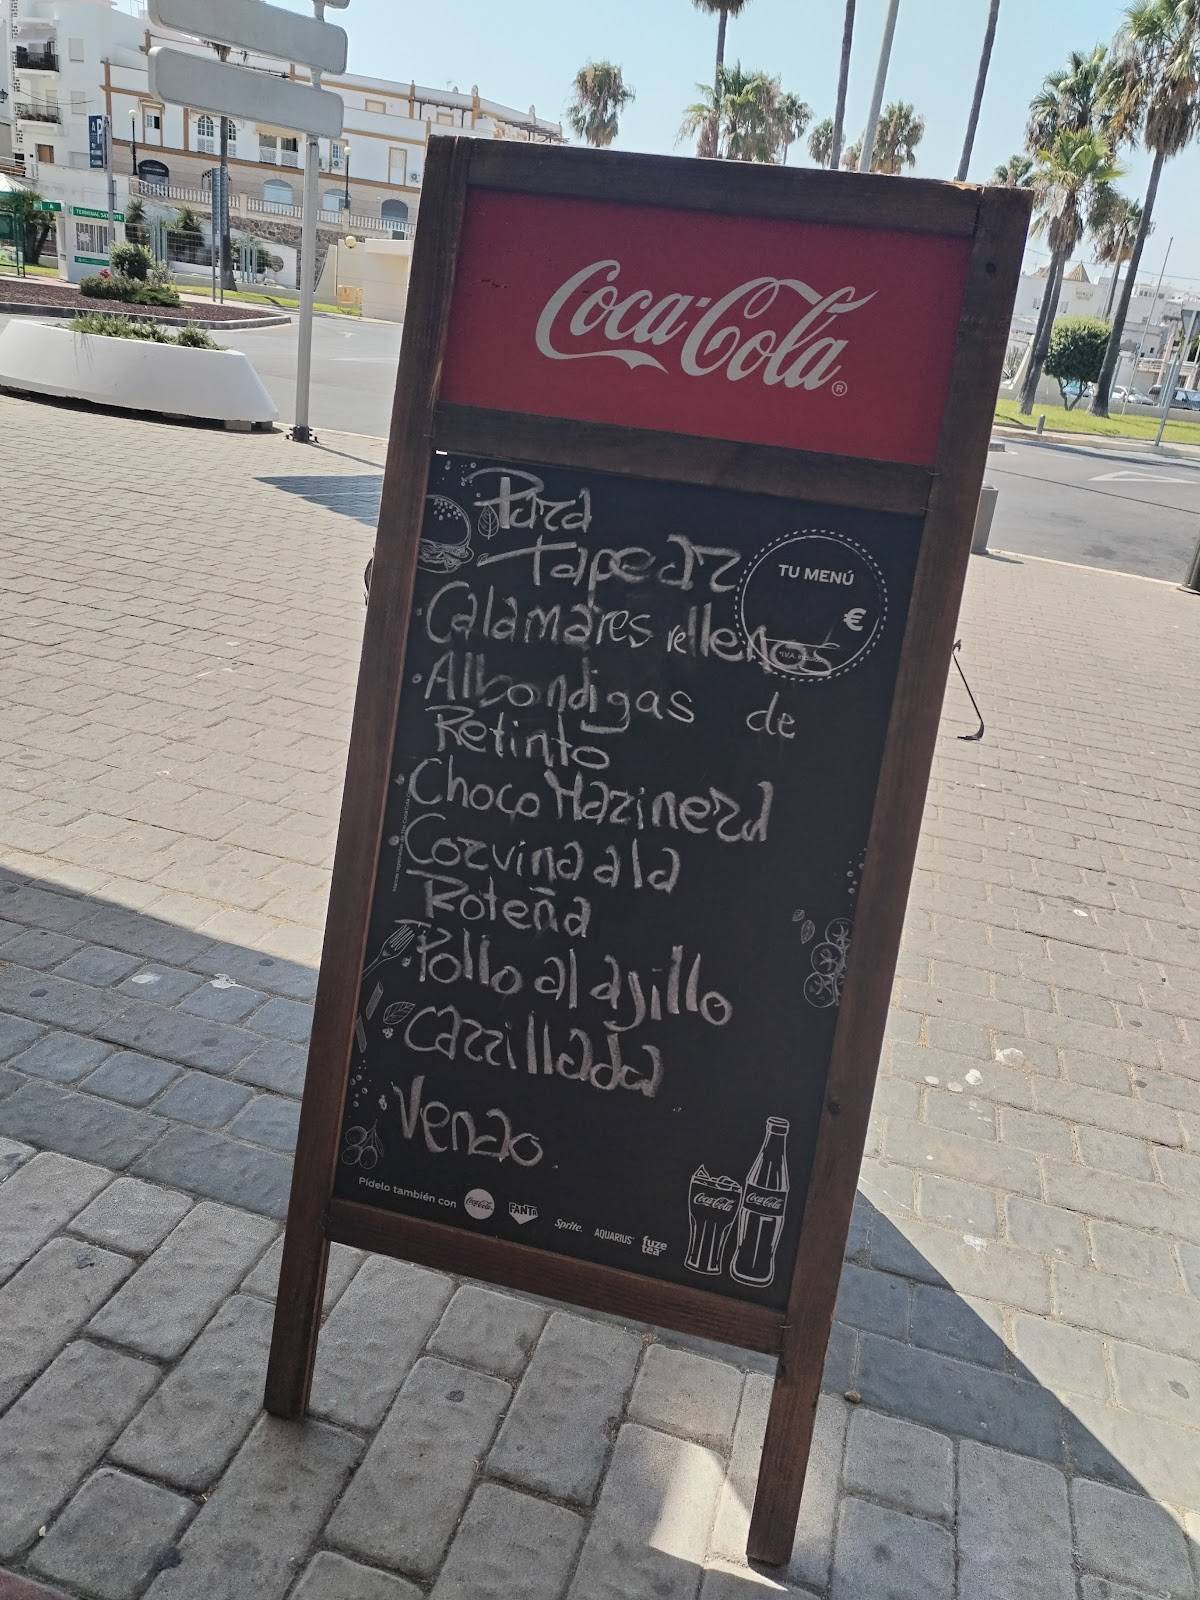 Coca-Cola®
Para
Tapear
TU MENÚ
€
·Calamares rellenos
·Albondigas de
Retinto
·Choco Marinera
·Corvina a la
Roteña
·Pollo al ajillo
·carrillada
·Venao
Pídelo también con
Coca-Cola
FANTA
Sprite
AQUARIUS
fuze
tea
Coca-Cola
Coca-Cola